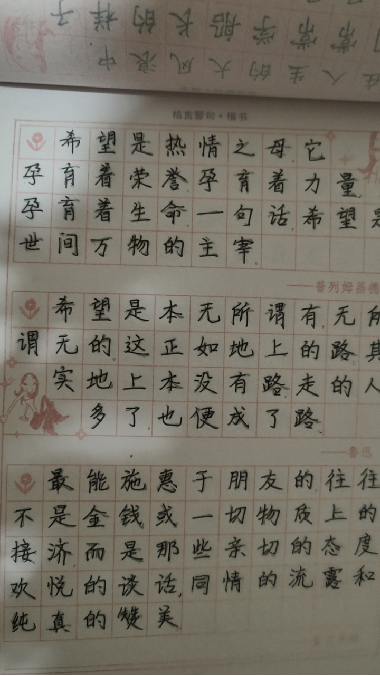 在人生的大风浪中
常常学船长的样子
格言警句·楷书
希望是热情之母它
孕育着荣誉孕育着力量
孕育着生命一句话希望是
世间万物的主宰
——普列姆昌德
希望是本无所谓有,无所
谓无的这正如地上的路其
实地上本没有路,走的人
多了也便成了路.
——鲁迅
最能施惠于朋友的往往
不是金钱或一切物质上的
接济而是那些亲切的态度
欢悦的谈话,同情的流露和
纯真的赞美